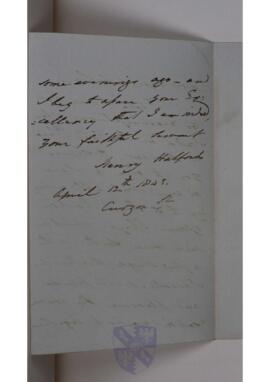 some evenings ago - and
I beg to assure your Ex-
:cellency that I am indeed
your faithful servant
Henry Halford
April 12th 1843.
Curzon St